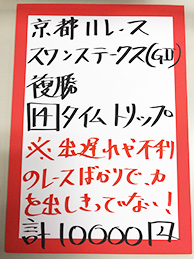 京都11レース
スワンステークス(GⅡ)
複勝
14 タイムトリップ
※出遅れや不利
のレースばかりで、力
を出しきっていない!
計10000円